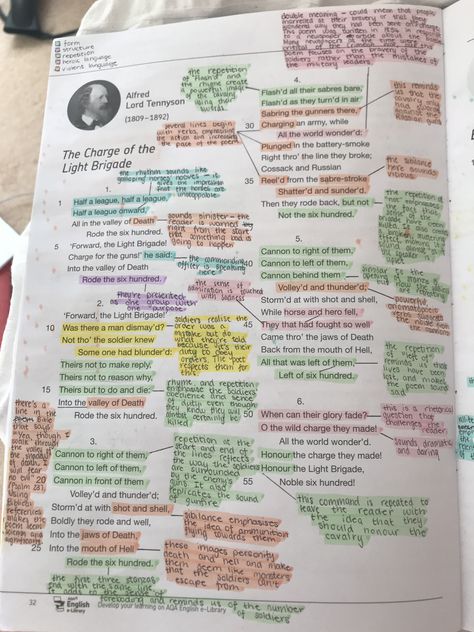 form
structure
repetition
heroic language
violent language
double meaning - could mean that people
marvelled at their bravery or that they
wondered why they had been sent off to charge.
This poem was written in 1854 in response
to a newspaper article about the
of the bravery of the
soldiers rather than the mistakes
of military leaders
Alfred
Lord Tennyson
(1809–1892)
The Charge of the
Light Brigade
the rhythm sounds like
galloping horses' hooves - it
gives the impression
that the horses are
unstoppable
1
1 Half a league, half a league,
Half a league onward,
All in the valley of Death
Rode the six hundred.
5 'Forward, the Light Brigade!
Charge for the guns!' he said:
Into the valley of Death
Rode the six hundred.
sounds sinister - the
reader is worried
right from the start
that something bad is
going to happen
the commanding
officer is speaking
here
they're presented
as one group with
one purpose
the sense of
admiration is touched
with sadness
2.
'Forward, the Light Brigade!'
10 Was there a man dismay'd?
Not tho' the soldier knew
Some one had blunder'd:
Theirs not to make reply,
Theirs not to reason why,
15 Theirs but to do and die:
Into the valley of Death
Rode the six hundred.
soldiers realise the
order was a
mistake but do
what they're told
because it's their
duty to obey
orders. The poet
respects them for
this
rhyme and repetition
emphasise the soldiers'
obedience and sense of
duty even though
they know they will
almost certainly be
killed
there's a
line in the
Bible
that says
"Yea, though I
walk through
the valley of
the shadow
of death, I
will fear
no evil"
(Psalm 23),
using
Biblical
references
makes the
poem seem
serious and
significant
3.
Cannon to right of them,
Cannon to left of them,
20 Cannon in front of them
Volley'd and thunder'd;
Storm'd at with shot and shell,
Boldly they rode and well,
Into the jaws of Death,
25 Into the mouth of Hell
Rode the six hundred.
repetition at the
start and end of
the lines reflects
the way the soldiers
are surrounded
by the enemy's
guns. It also
replicates the sound
of gunfire
sibilance emphasises
the idea of ammunition
flying towards them
these images personify
death and hell and make
them seem like monsters
that the soldiers can't
escape from
the first three stanzas
end with the same line
It adds to the sense of
foreboding and reminds us of the number
of soldiers
the repetition
of 'Flash'd' and
the rhyme create
a powerful image
of the cavalry
using their
swords
several lines begin
with verbs, emphasising
the action and increasing
the pace of the poem
4.
Flash'd all their sabres bare,
Flash'd as they turn'd in air
Sabring the gunners there,
30 Charging an army, while
All the world wonder'd:
Plunged in the battery-smoke
Right thro' the line they broke;
Cossack and Russian
35 Reel'd from the sabre-stroke
Shatter'd and sunder'd.
Then they rode back, but not
Not the six hundred.
this reminds
us that the
cavalry only
had swords
against the
Russian guns
the sibilance
here sounds
vicious
5.
Cannon to right of them,
40 Cannon to left of them,
Cannon behind them
Volley'd and thunder'd;
Storm'd at with shot and shell,
While horse and hero fell,
45 They that had fought so well
Came thro' the jaws of Death
Back from the mouth of Hell,
All that was left of them,
Left of six hundred.
the repetition
of 'left of'
reminds us that
lives have been
lost and
makes the poem
sound sad
6.
50 When can their glory fade?
O the wild charge they made!
All the world wonder'd.
Honour the charge they made!
Honour the Light Brigade,
55 Noble six hundred!
this is a rhetorical
question that
challenges the
reader
sounds dramatic
and daring
this command is repeated to
leave the reader with
the idea that they
should honour the
cavalry
32
AQA
English
e-Library
Develop your learning on AQA English e-Library